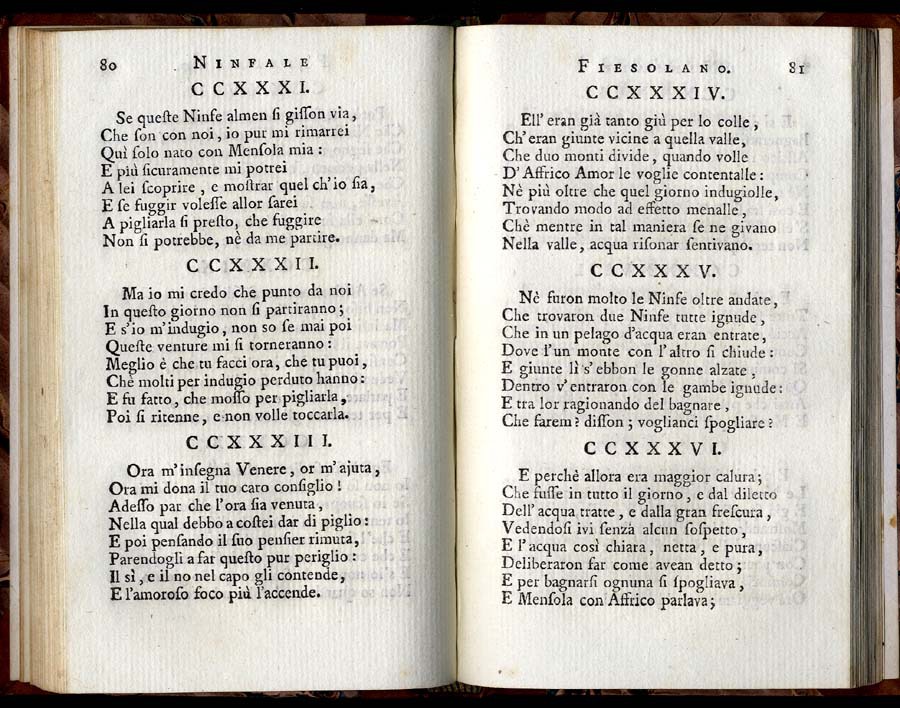 80 NINFALE
CCXXXI.
Se queſte Ninfe almen ſi giſſon via,
Che ſon con noi, io pur mi rimarrei
Quì ſolo nato con Menſola mia :
E più ſicuramente mi potrei
A lei ſcoprire , e moſtrar quel ch'io ſia,
E ſe fuggir voleſſe allor ſarei
A pigliarla ſi preſto, che fuggire
Non ſi potrebbe, nè da me partire.
CCXXXII.
Ma io mi credo che punto da noi
In queſto giorno non ſi partiranno ;
E s'io m'indugio , non so ſe mai poi
Queſte venture mi ſi torneranno :
Meglio è che tu facci ora, che tu puoi,
Chè molti per indugio perduto hanno :
E fu fatto, che moſſo per pigliarla ,
Poi ſi ritenne, e non volle toccarla.
CCXXXIII.
Ora m'inſegna Venere, or m'ajuta,
Ora mi dona il tuo caro conſiglio !
Adeſſo par che l'ora ſia venuta ,
Nella qual debbo a coſtei dar di piglio :
E poi penſando il ſuo penſier rimuta,
Parendogli a far queſto pur periglio :
Il sì , e il no nel capo gli contende,
E l'amoroſo foco più l'accende.
FIESOLANO. 81
CCXXXIV.
Ell' eran già tanto giù per lo colle ,
Ch'eran giunte vicine a quella valle,
Che duo monti divide , quando volle
D'Affrico Amor le voglie contentalle :
Nè più oltre che quel giorno indugiolle,
Trovando modo ad effetto menalle ,
Chè mentre in tal maniera ſe ne givano
Nella valle, acqua riſonar ſentivano.
CCXXXV.
Nè furon molto le Ninfe oltre andate,
Che trovaron due Ninfe tutte ignude ,
Che in un pelago d'acqua eran entrate,
Dove l'un monte con l'altro ſi chiude :
E giunte lì s'ebbon le gonne alzate ,
Dentro v'entraron con le gambe ignude :
E tra lor ragionando del bagnare ,
Che farem ? diſſon ; voglianci ſpogliare ?
CCXXXVI.
E perchè allora era maggior calura ;
Che fuſſe in tutto il giorno , e dal diletto
Dell' acqua tratte , e dalla gran freſcura ,
Vedendoſi ivi ſenza alcun ſoſpetto ,
E l'acqua così chiara , netta , e pura ,
Deliberaron far come avean detto ;
E per bagnarſi ognuna ſi ſpogliava ,
E Menſola con Affrico parlava ;